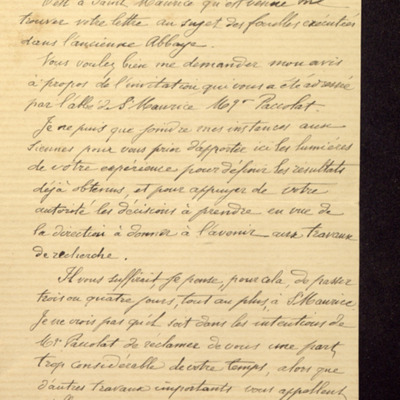 C'est à Saint Maurice qu'est venue me
trouver votre lettre au sujet des fouilles exécutées
dans l'ancienne Abbaye.
Vous voulez bien me demander mon avis
à propos de l'invitation qui vous a été adressée
par l'abbé de St Maurice Mgr Paccolat
Je ne puis que joindre mes instances aux
siennes pour vous prier d'apporter ici les lumières
de votre expérience pour définir les résultats
déjà obtenus, et pour appuyer de votre
autorité les décisions à prendre en vue de
la direction à donner à l'avenir aux travaux
de recherche.
Il vous suffirait je pense, pour cela, de passer
trois ou quatre jours, tout au plus, à St Maurice
Je ne crois pas qu'il soit dans les intentions de
Mgr Paccolat de réclamer de vous une part
trop considérable de votre temps, alors que
d'autres travaux importants vous appellent